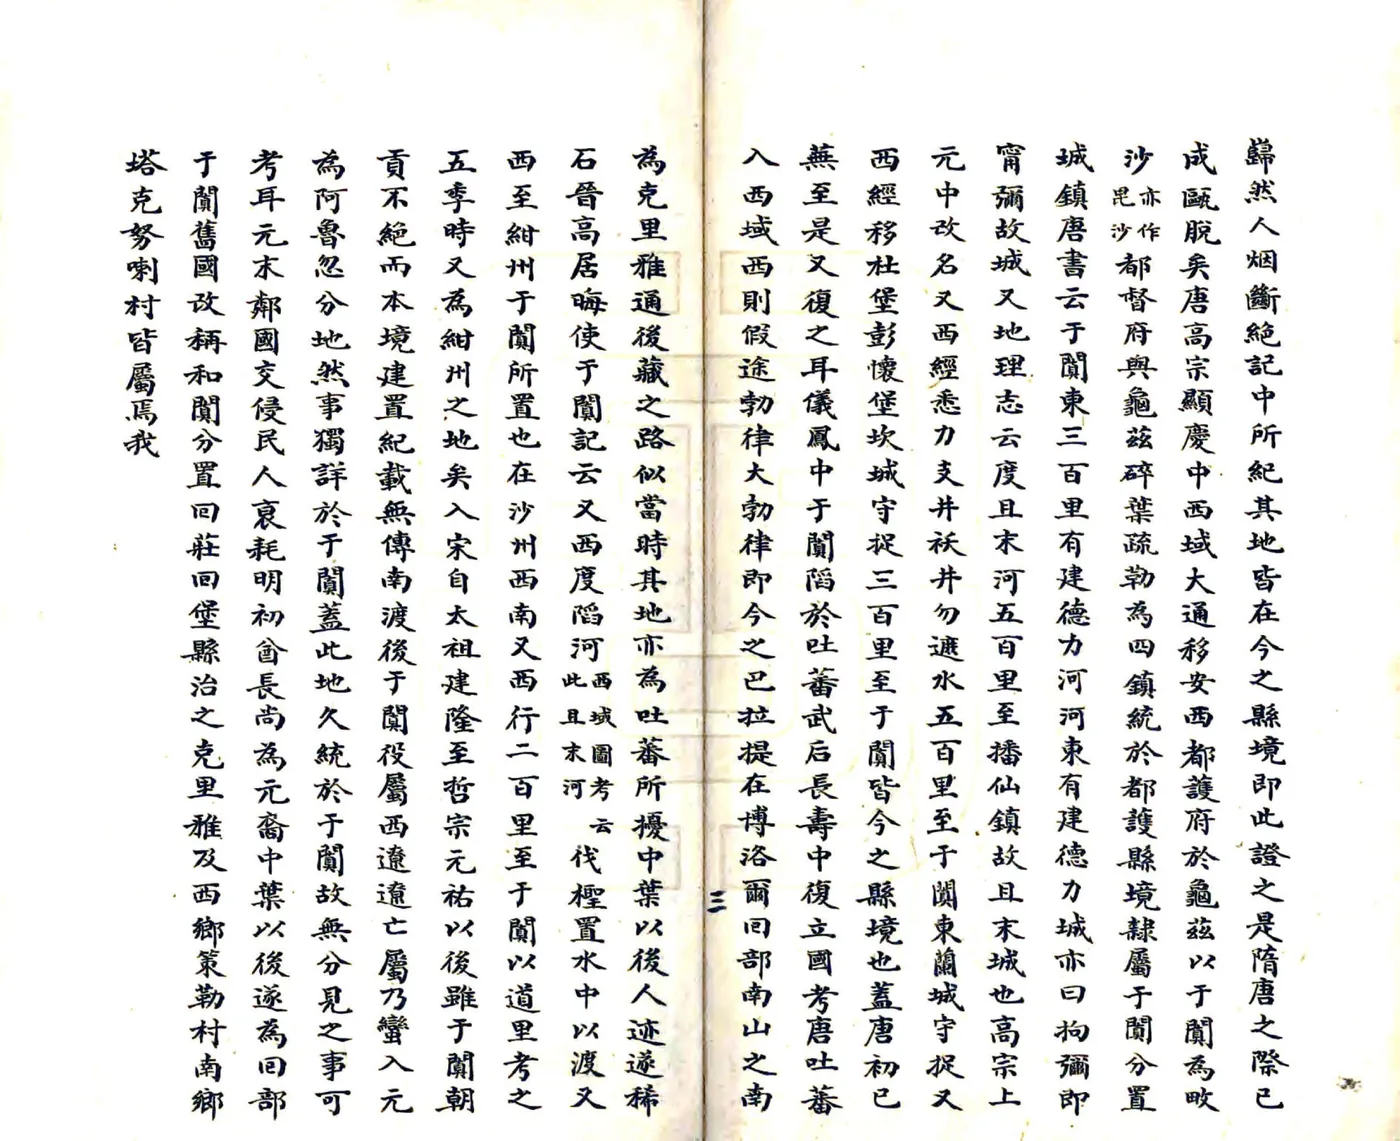 巋然人烟斷絕記中所紀其地皆在今之縣境即此證之是隋唐之際已
成甌脫矣唐高宗顯慶中西域大通移安西都護府於龜茲以于闐為毗
沙亦作毘沙都督府與龜茲碎葉疏勒為四鎮統於都護縣境隷屬于闐分置
城鎮唐書云于闐東三百里有建德力河河東有建德力城亦曰拘彌即
甯彌故城又地理志云度且末河五百里至播仙鎮故且末城也高宗上
元中改名又西經悉力支井袄井勿遮水五百里至于闐東蘭城守捉又
西經移杜堡彭懷堡坎城守捉三百里至于闐皆今之縣境也蓋唐初已
蕪至是又復之耳儀鳳中于闐陷於吐蕃武后長壽中復立國考唐吐蕃
入西域西則假途勃律大勃律即今之巴拉提在博洛爾回部南山之南
三
為克里雅通後藏之路似當時其地亦為吐蕃所擾中葉以後人迹遂稀
石晉高居晦使于闐記云又西度陷河西域圖考云此且末河伐檉置水中以渡又
西至紺州于闐所置也在沙州西南又西行二百里至于闐以道里考之
五季時又為紺州之地矣入宋自太祖建隆至哲宗元祐以後雖于闐朝
貢不絕而本境建置紀載無傳南渡後于闐役屬西遼遼亡屬乃蠻入元
為阿魯忽分地然事獨詳於于闐蓋此地久統於于闐故無分見之事可
考耳元末鄰國交侵民人裒耗明初酋長尚為元裔中葉以後遂為回部
于闐舊國改稱和闐分置回莊回堡縣治之克里雅及西鄉策勒村南鄉
塔克努喇村皆屬焉我